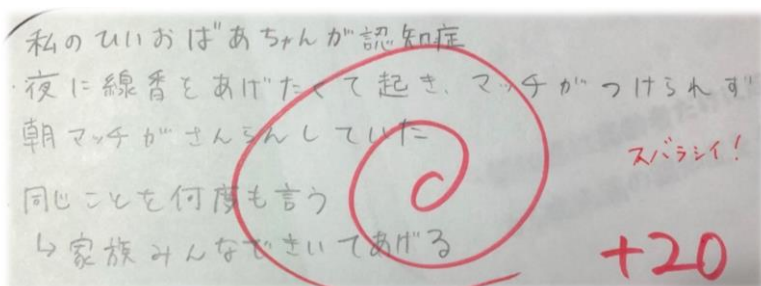 私のひいおばあちゃんが認知症
・夜に線香をあげたくて起き、マッチがつけられず
朝マッチがさんらんしていた
同じことを何度も言う
↳家族みんなできいてあげる
スバラシイ!
+20